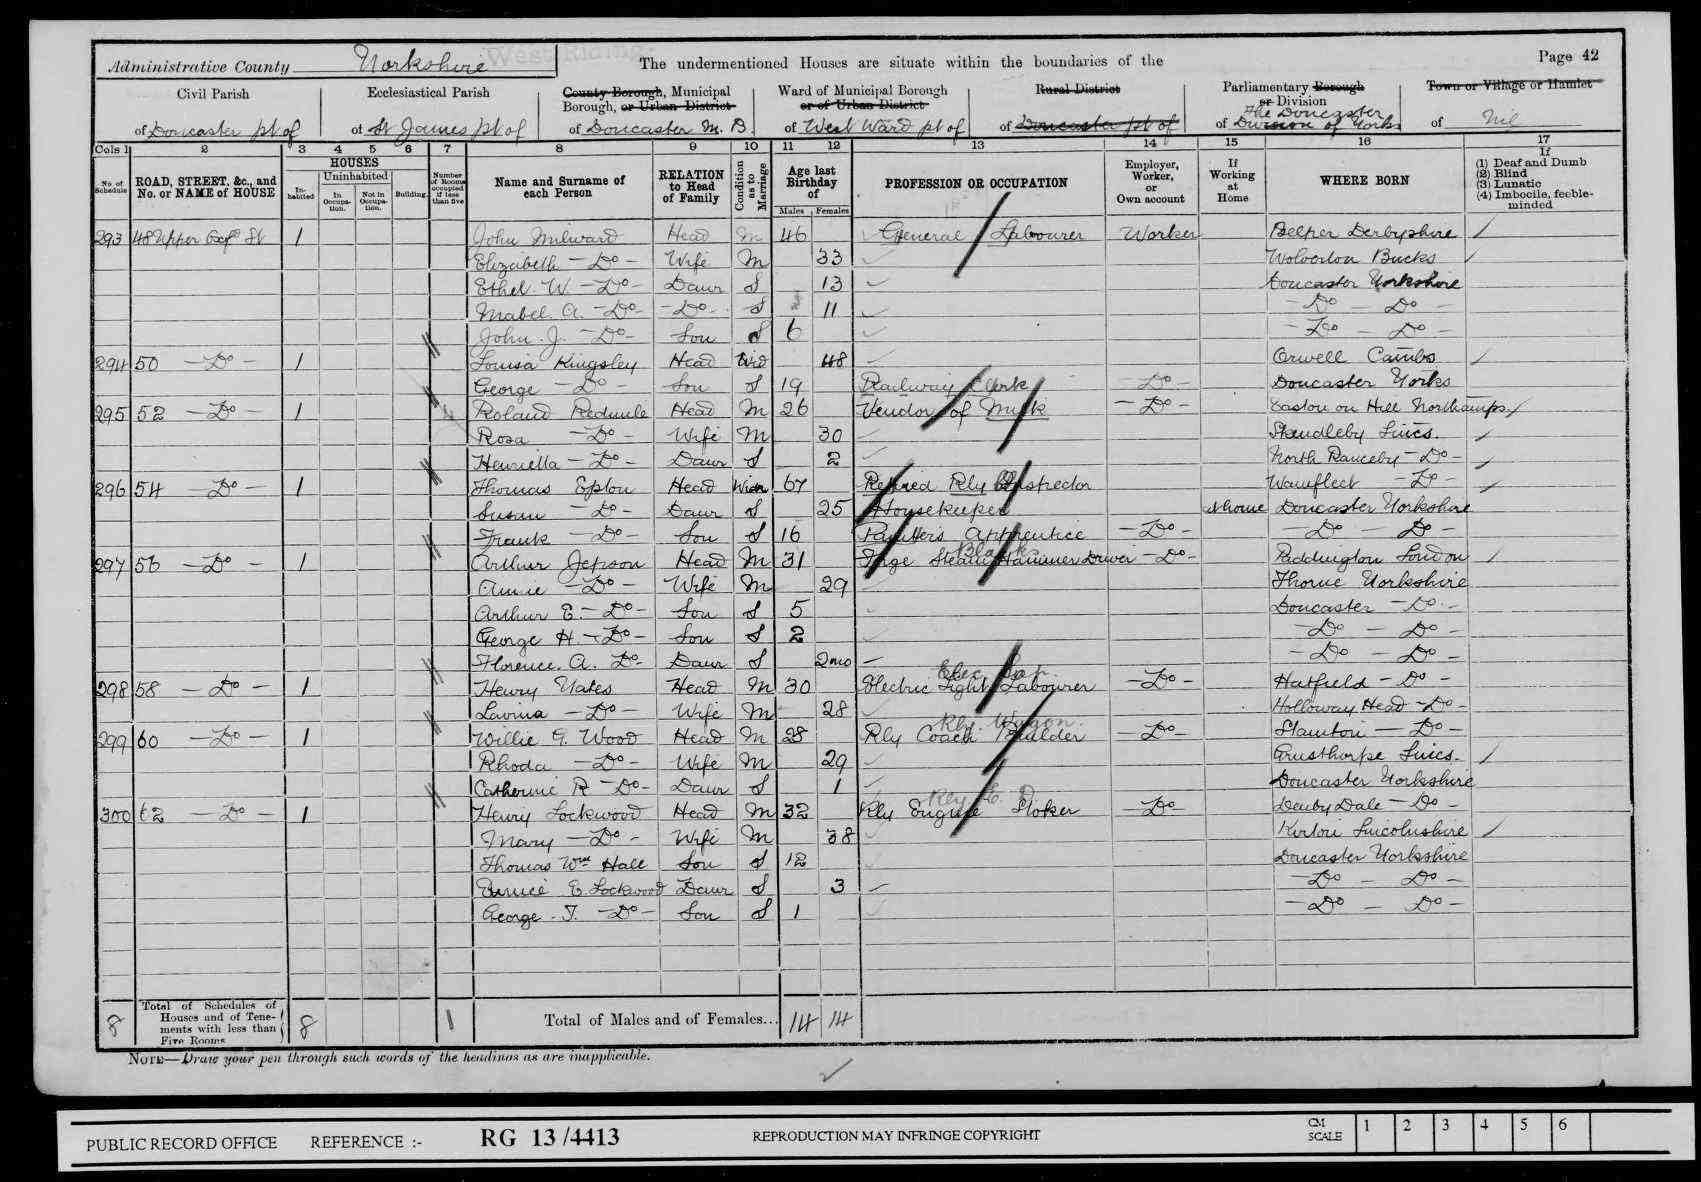 West Riding
Administrative County Yorkshire The undermentioned Houses are situate within the boundaries of the Page 42
Civil Parish Ecclesiastical Parish County Borough, Municipal Borough, or Urban District Ward of Municipal Borough or of Urban District Rural District Parliamentary Borough or Division Town or Village or Hamlet
of Doncaster pt of of St James pt of of Doncaster M. B. of West Ward pt of of Doncaster pt of of The Doncaster Division of Yorks of Nil
Cols 1 2 3 4 5 6 7 8 9 10 11 12 13 14 15 16 17
No. of Schedule ROAD, STREET, &c., and No. or NAME of HOUSE HOUSES Inhabited Uninhabited In Occupation. Not in Occupation. Building. Number of Rooms occupied if less than five Name and Surname of each Person RELATION to Head of Family Condition as to Marriage Age last Birthday of Males Females PROFESSION OR OCCUPATION Employer, Worker, or Own account If Working at Home WHERE BORN If (1) Deaf and Dumb (2) Blind (3) Lunatic (4) Imbecile, feeble-minded
293 48 Upper Oxfd St 1 John Milward Head M 46 General Labourer Worker Belper Derbyshire
Elizabeth - Do - Wife M 33 Wolverton Bucks
Ethel W. - Do - Daur S 13 Doncaster Yorkshire
Mabel A. - Do - - Do - S 11 - Do - Do -
John J. - Do - Son S 6 - Do - Do -
294 50 - Do - 1 Louisa Kingsley Head Wid 48 Orwell Cambs
George - Do - Son S 19 Railway Clerk - Do - Doncaster Yorks
295 52 - Do - 1 4 Roland Redmile Head M 26 Vendor of Milk - Do - Easton on Hill Northamps
Rosa - Do - Wife M 30 Skendleby Lincs.
Henrietta - Do - Daur S 2 North Rauceby - Do -
296 54 - Do - 1 Thomas Epton Head Widr 67 Retired Rly Inspector Wainfleet - Do -
Susan - Do - Daur S 25 Housekeeper At home Doncaster Yorkshire
Frank - Do - Son S 16 Painters Apprentice - Do - - Do - Do -
297 56 - Do - 1 Arthur Jepson Head M 31 Forge Steam Hammer Driver Blacks - Do - Paddington London
Annie - Do - Wife M 29 Thorne Yorkshire
Arthur E. - Do - Son S 5 Doncaster - Do -
George H. - Do - Son S 2 - Do - Do -
Florence. A. Do - Daur S 2mo - Do - Do -
298 58 - Do - 1 Henry Yates Head M 30 Electric Light Labourer - Do - Hatfield - Do -
Lavinia - Do - Wife M 28 Holloway Head - Do -
Rly. Wagon.
299 60 - Do - 1 Willie G. Wood Head M 28 Rly Coach Builder - Do - Stainton - Do -
Rhoda - Do - Wife M 29 Grusthorpe Lincs.
Catherine R - Do - Daur S 1 Doncaster Yorkshire
300 62 - Do - 1 Henry Lockwood Head M 32 Rly Engine Stoker - Do - Denby Dale - Do -
Mary - Do - Wife M 38 Kirton Lincolnshire
Thomas Wm Hall Son S 12 Doncaster Yorkshire
Eunice E. Lockwood Daur S 3 - Do - Do -
George. T. - Do - Son S 1 - Do - Do -
8 Total of Schedules of Houses and of Tenements with less than Five Rooms 8 1 Total of Males and of Females... 14 14
NOTE—Draw your pen through such words of the headings as are inapplicable.
PUBLIC RECORD OFFICE REFERENCE :- RG 13/4413 REPRODUCTION MAY INFRINGE COPYRIGHT CM SCALE 1 2 3 4 5 6